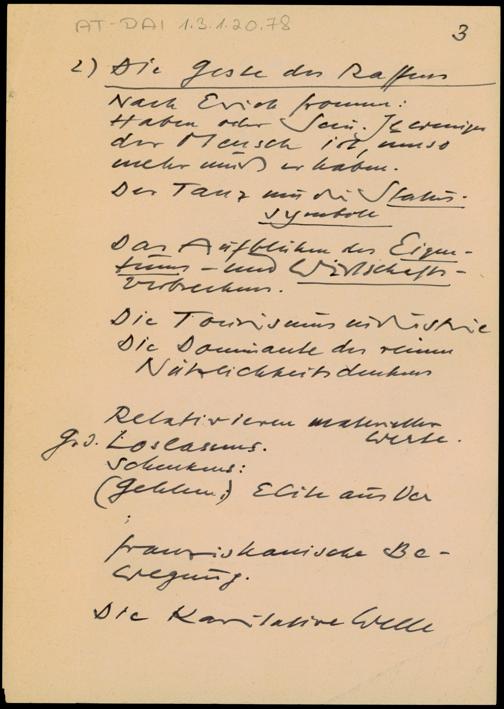 AT-DAI 1.3.1.20.78
3
2) Die Geste des Raffens
Nach Erich Fromm:
Haben oder Sein. Je weniger
der Mensch ist, umso
mehr muß er haben.
Der Tanz um die Status-
symbole
Das Aufblühen der Eigen-
tums- und Wirtschafts-
verbrechens.
Die Tourismusindustrie
Die Dominante des reinen
Nützlichkeitsdenkens
Relativieren materieller
Werte.
Loslassens.
Schenkens:
(Gehlen:) Elite aus der
:
franziskanische Be-
wegung.
Die Karitative Welle